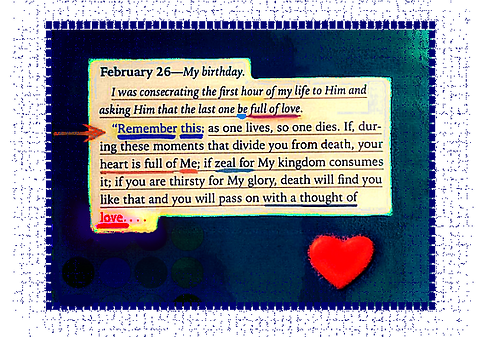 February 26—My birthday.
I was consecrating the first hour of my life to Him and
asking Him that the last one be full of love.
"Remember this: as one lives, so one dies. If, dur-
ing these moments that divide you from death, your
heart is full of Me; if zeal for My kingdom consumes
it; if you are thirsty for My glory, death will find you
like that and you will pass on with a thought of
love. . . .